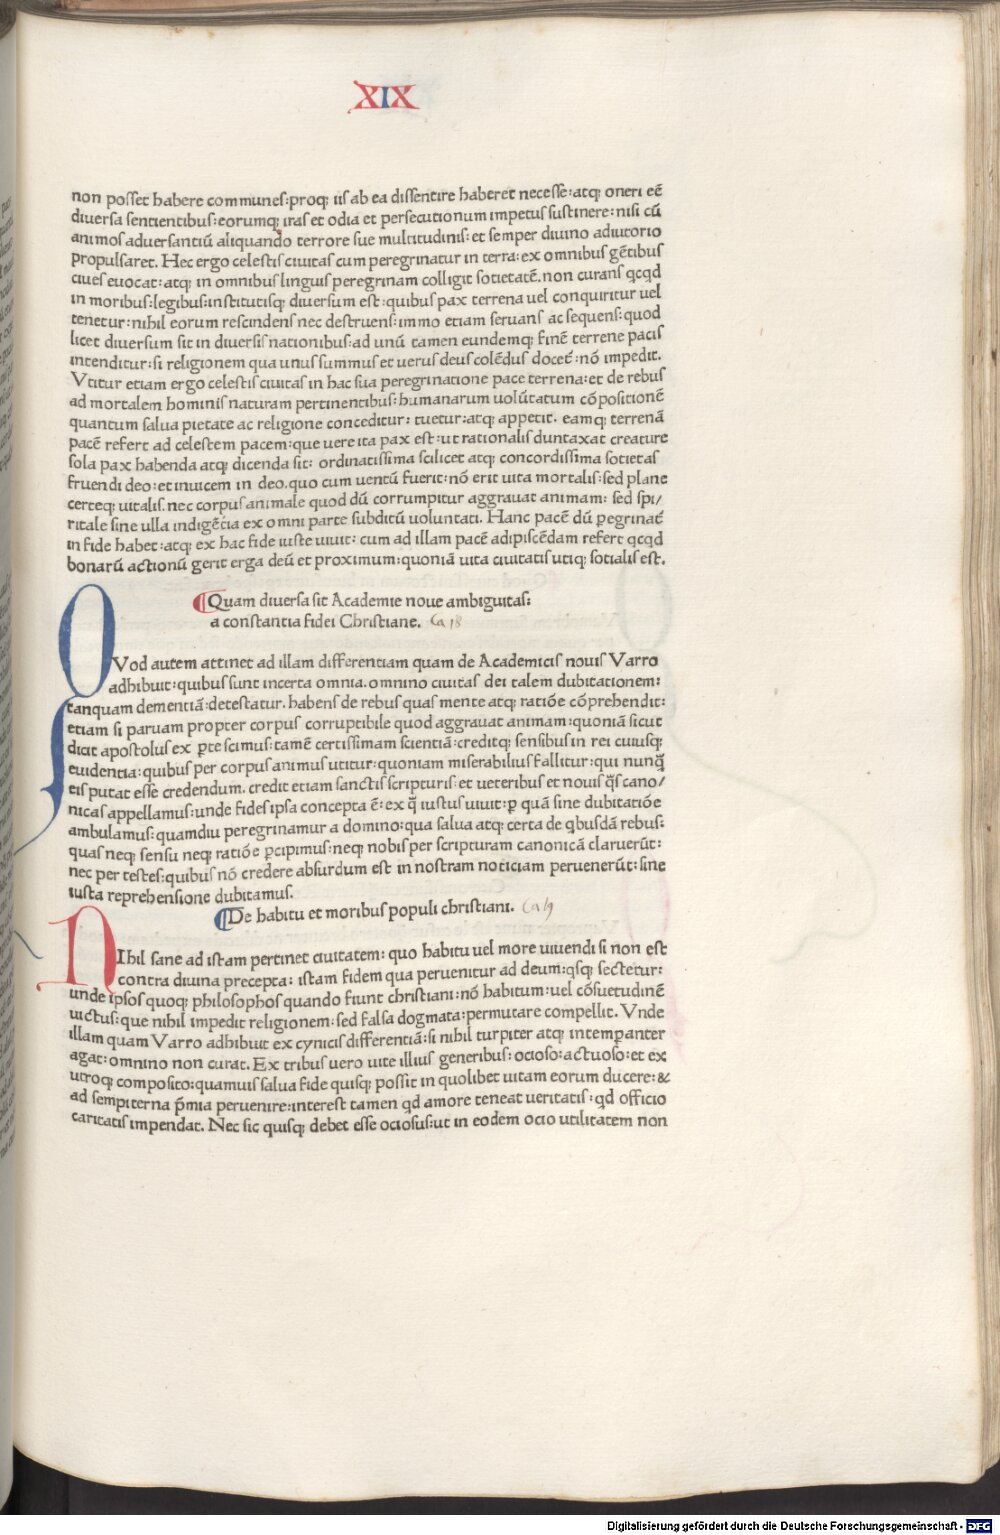 XIX
non posset habere communes:proqꝫ iis ab ea dissentire haberet necesse:atqꝫ oneri eē
diversa sentientibus:eorumqꝫ iras et odia et persecutionum impetus sustinere:nisi cū
animos adversantiū aliquando terrore sue multitudinis:et semper divino adiutorio
propulsaret. Hec ergo celestis civitas cum peregrinatur in terra:ex omnibus gētibus
cives evocat:atqꝫ in omnibus linguis peregrinam colligit societatē.non curans qcqd
in moribus:legibus:institutisqꝫ diversum est:quibus pax terrena vel conquiritur vel
tenetur:nihil eorum rescindens nec destruens:immo etiam servans ac sequens:quod
licet diversum sit in diversis nationibus:ad unū tamen eundemqꝫ finē terrene pacis
intenditur:si religionem qua unus summus et verus deus colēdus docet̄:nō impedit.
Vtitur etiam ergo celestis civitas in hac sua peregrinatione pace terrena:et de rebus
ad mortalem hominis naturam pertinentibus:humanarum volūtatum cōpositionē
quantum salva pietate ac religione conceditur: tuetur:atqꝫ appetit. eamqꝫ terrenā
pacē refert ad celestem pacem:que vere ita pax est:ut rationalis duntaxat creature
sola pax habenda atqꝫ dicenda sit: ordinatissima scilicet atqꝫ concordissima societas
fruendi deo:et invicem in deo.quo cum ventū fuerit:nō erit vita mortalis:sed plane
certeqꝫ vitalis.nec corpus animale quod dū corrumpitur aggravat animam: sed spi/
ritale sine ulla indigētia ex omni parte subditū voluntati. Hanc pacē dū ꝑegrinat̄
in fide habet:atqꝫ ex hac fide iuste vivit: cum ad illam pacē adipiscēdam refert qcqd
bonarū actionū gerit erga deū et proximum:quoniā vita civitatis utiqꝫ socialis est.
¶Quam diversa sit Academie nove ambiguitas:
a constantia fidei Christiane. Ca 18
QVod autem attinet ad illam differentiam quam de Academicis novis Varro
adhibuit:quibus sunt incerta omnia.omnino civitas dei talem dubitationem:
tanquam dementiā:detestatur.habens de rebus quas mente atqꝫ ratiōe cōprehendit:
etiam si parvam propter corpus corruptibile quod aggravat animam:quoniā sicut
dicit apostolus ex ꝑte scimus:tamē certissimam scientiā:creditqꝫ sensibus in rei cuiusqꝫ
evidentia:quibus per corpus animus utitur:quoniam miserabilius fallitur:qui nunq̄
eis putat esse credendum.credit etiam sanctis scripturis:et veteribus et novis q̄s cano/
nicas appellamus:unde fides ipsa concepta ē:ex q̄ iustus vivit:ꝑ quā sine dubitatiōe
ambulamus:quamdiu peregrinamur a domino:qua salva atqꝫ certa de qbusdā rebus:
quas neqꝫ sensu neqꝫ ratiōe ꝑcipimus:neqꝫ nobis per scripturam canonicā claruerūt:
nec per testes:quibus nō credere absurdum est in nostram noticiam pervenerūt:sine
iusta reprehensione dubitamus.
¶De habitu et moribus populi christiani. Ca 19
NIhil sane ad istam pertinet civitatem: quo habitu vel more vivendi si non est
contra divina precepta: istam fidem qua pervenitur ad deum:qsqꝫ sectetur:
unde ipsos quoqꝫ philosophos quando fiunt christiani:nō habitum:vel cōsuetudinē
victus:que nihil impedit religionem:sed falsa dogmata:permutare compellit. Vnde
illam quam Varro adhibuit ex cynicis differentiā:si nihil turpiter atqꝫ intemꝑanter
agat:omnino non curat. Ex tribus vero vite illius generibus:ocioso:actuoso:et ex
utroqꝫ composito:quamvis salva fide quisqꝫ possit in quolibet vitam eorum ducere:&
ad sempiterna p̄mia pervenire:interest tamen qd amore teneat veritatis:qd officio
caritatis impendat. Nec sic quisqꝫ debet esse ociosus:ut in eodem ocio utilitatem non
Digitalisierung gefördert durch die Deutsche Forschungsgemeinschaft - DFG